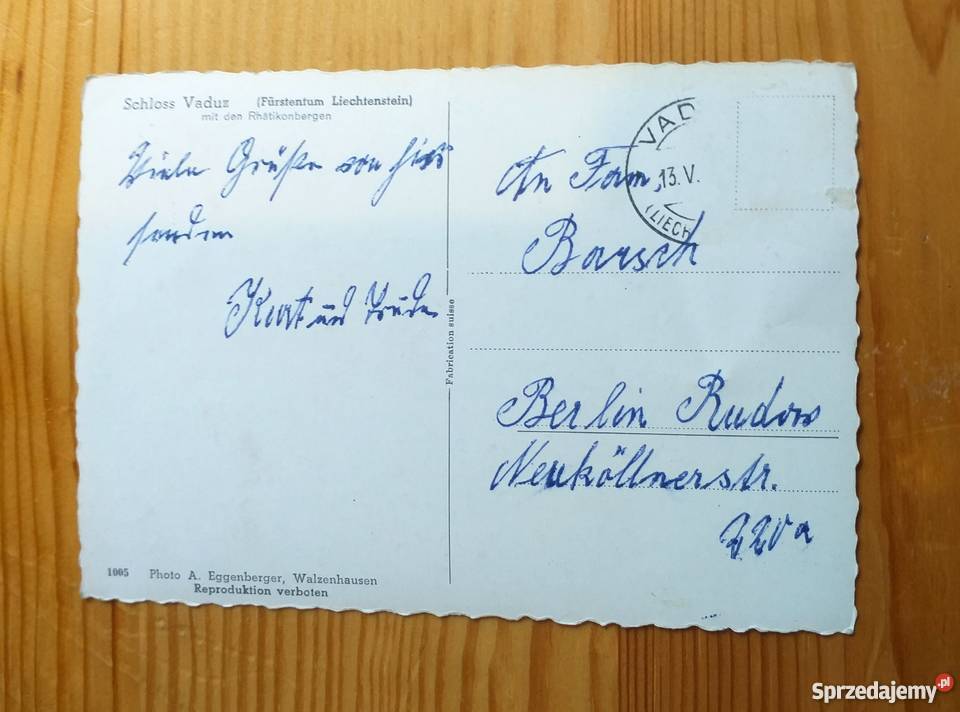 Schloss Vaduz (Fürstentum Liechtenstein)
mit den Rhätikonbergen
Viele Grüße von hier
senden
Kurt und Trude
Fabrication suisse
1005 Photo A. Eggenberger, Walzenhausen
Reproduktion verboten
VAD
13. V.
(LIECH
An Fam.
Barsch
Berlin Rudow
Neuköllnerstr.
220a
Sprzedajemy.pl